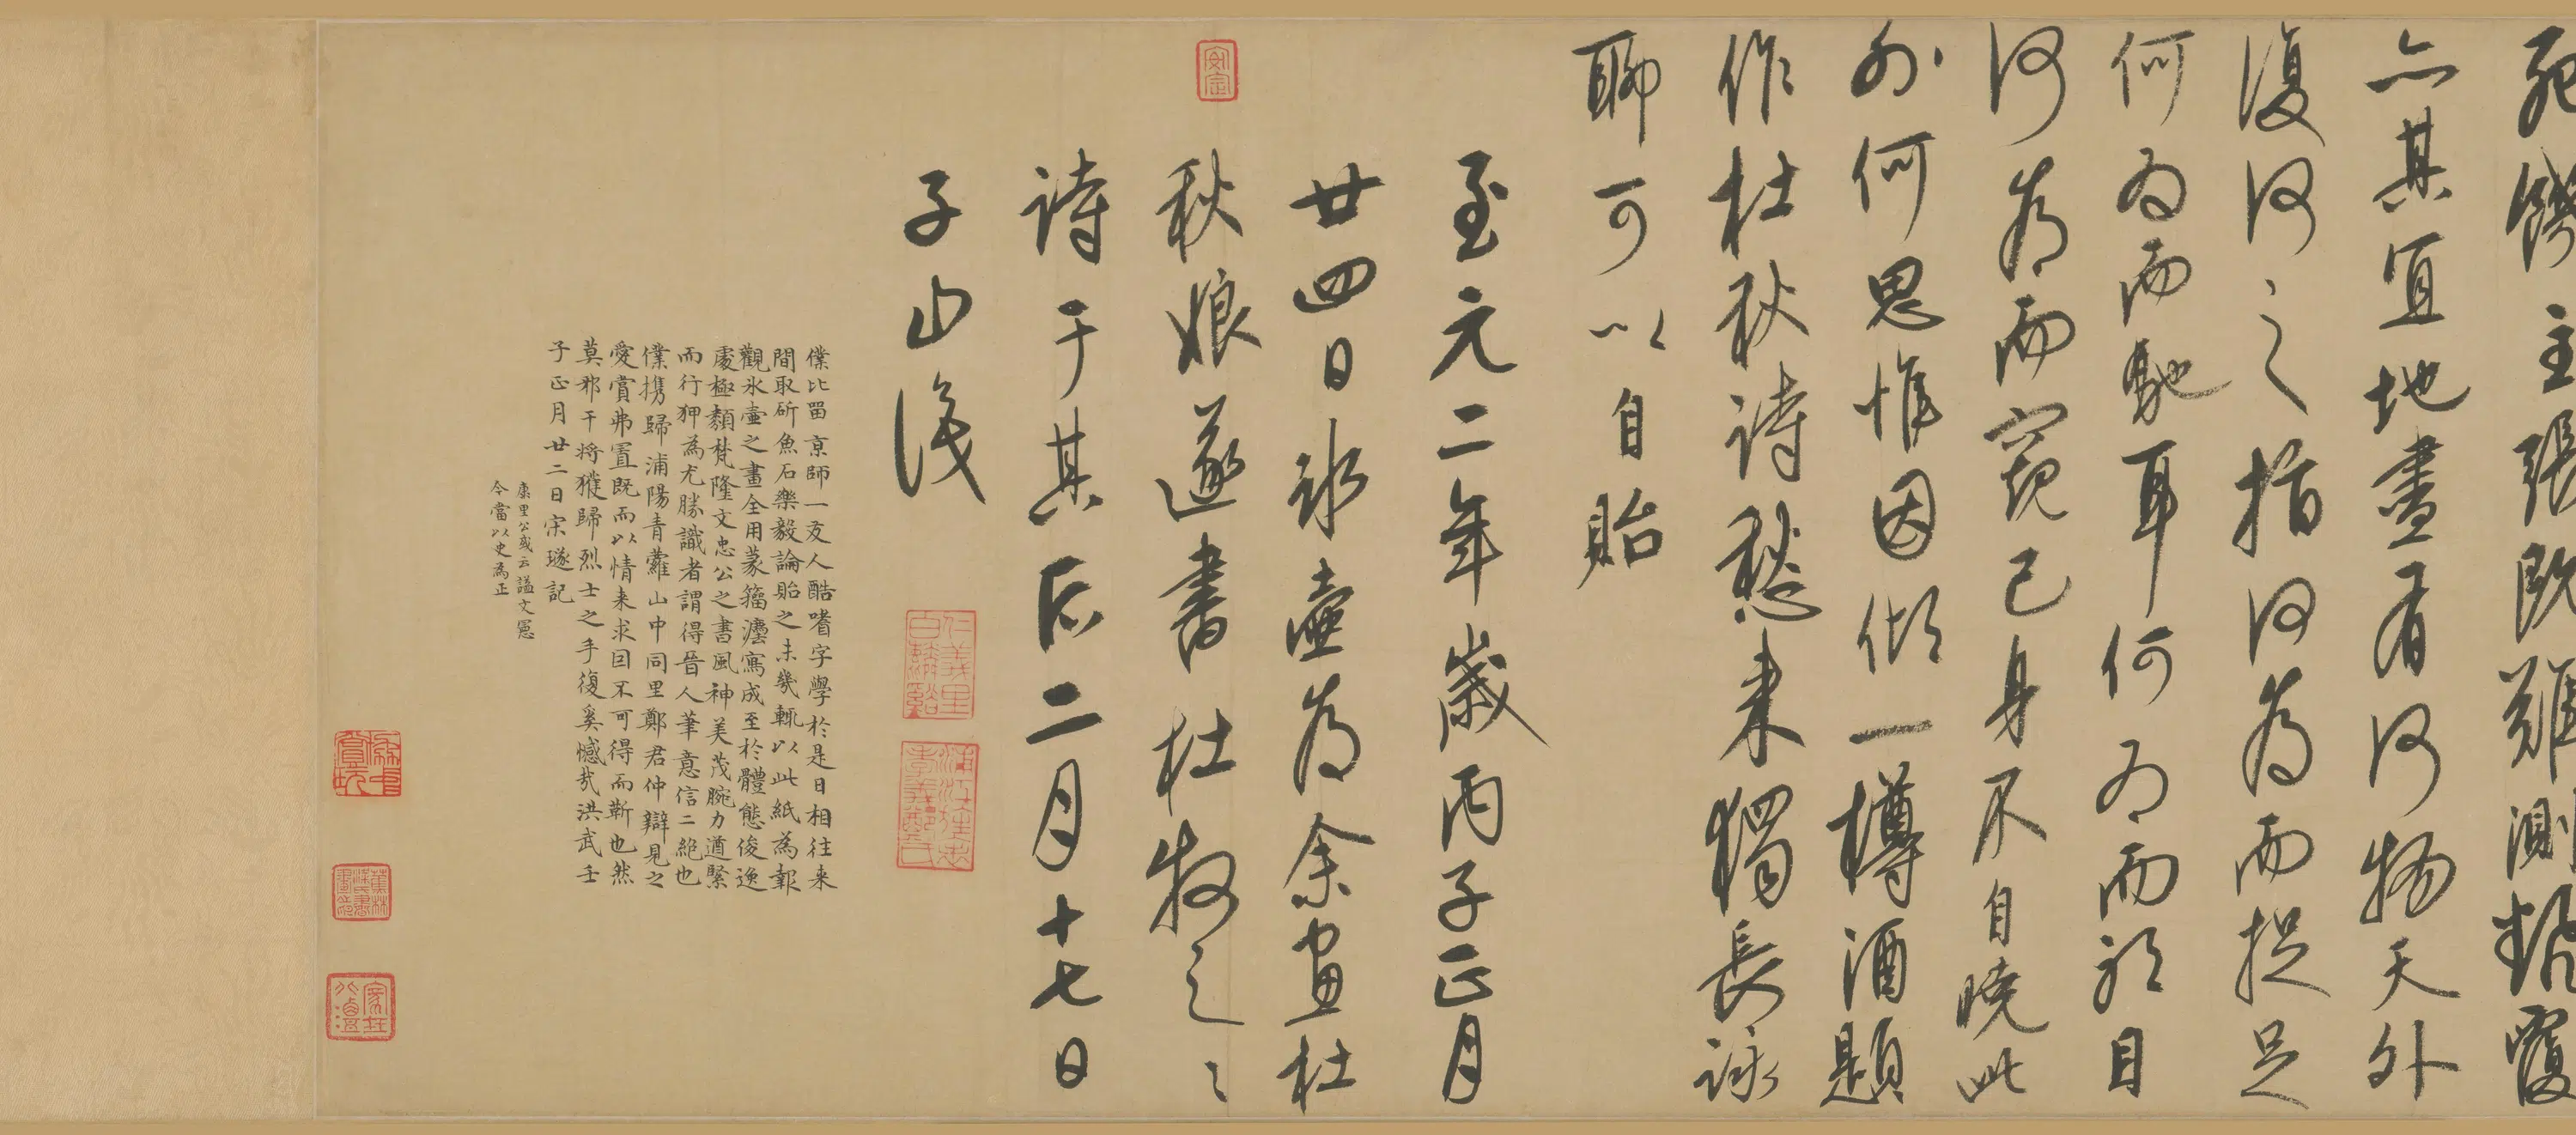 死饑主張既難測翻覆
亦其宜地盡有何物天外
復何之指何為而捉足
何為而馳耳何為而聽目
何為而窺己身不自曉此
外何思惟因傾一樽酒題
作杜秋詩愁来獨長詠
聊可以自貽
至元二年歲丙子正月
廿四日冰壺為余畫杜
秋娘遂書杜牧之之
詩于其后二月十七日
子山識
僕比畱京師一友人酷嗜字學於是日相往来
間取斫魚石樂毅論貽之未幾輒以此紙為報
觀氷壷之畫全用篆籀灋寫成至於體態俊逸
處極類梵隆文忠公之書風神美茂腕力遒緊
而行狎為尤勝識者謂得晉人筆意信二絶也
僕携歸浦陽青蘿山中同里鄭君仲辯見之
愛賞弗置既而以情来求囙不可得而靳也然
莫邪干将獲歸烈士之手復奚憾哉洪武壬
子正月廿二日宋璲記
康里公或云謚文憲
今當以史為正
安定
仁義里
白麟谿
浦江旌忠
孝義鄭氏
蕉林
梁氏書
畫之印